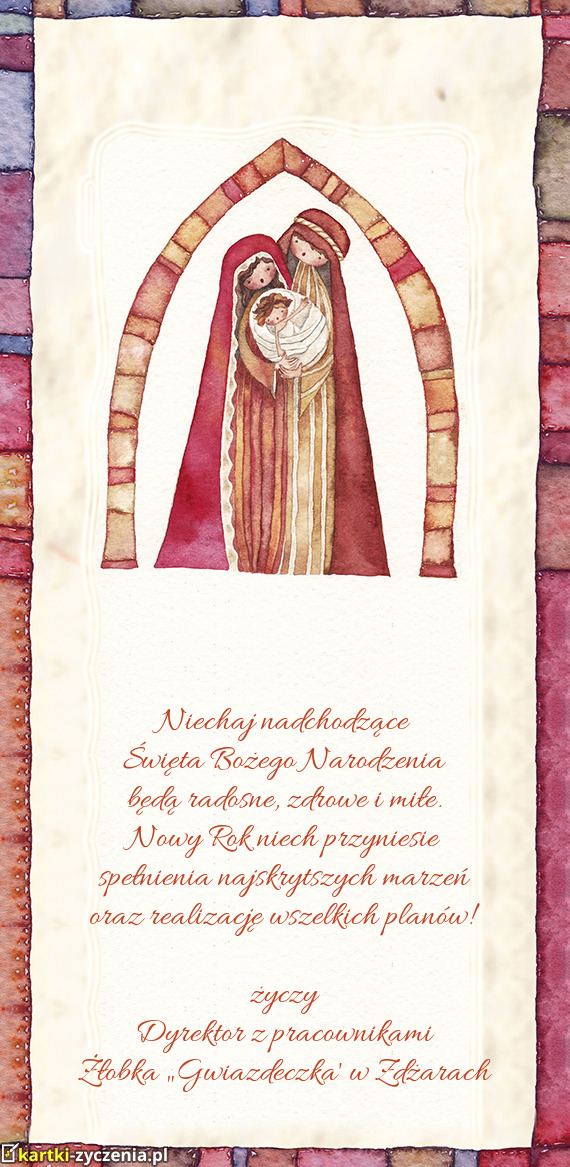 Niechaj nadchodzące
Święta Bożego Narodzenia
będą radosne, zdrowe i miłe.
Nowy Rok niech przyniesie
spełnienia najskrytszych marzeń
oraz realizację wszelkich planów!
życzy
Dyrektor z pracownikami
Żłobka „Gwiazdeczka' w Zdżarach
kartki-zyczenia.pl